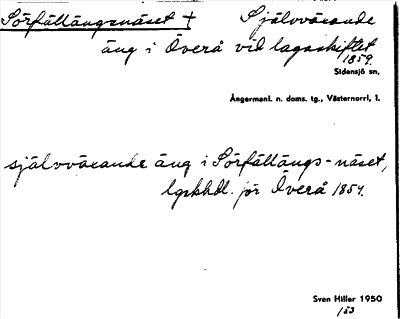 Sörfällängsnäset † Självväxande
äng i Överå vid lagaskiftet
1859.
Sidensjö sn,
Ångermanl. n. doms. tg., Västernorrl, l.
självväxande äng i Sörfällängs-näset,
lgskhdl. för Överå 1859.
Sven Hiller 1950
153